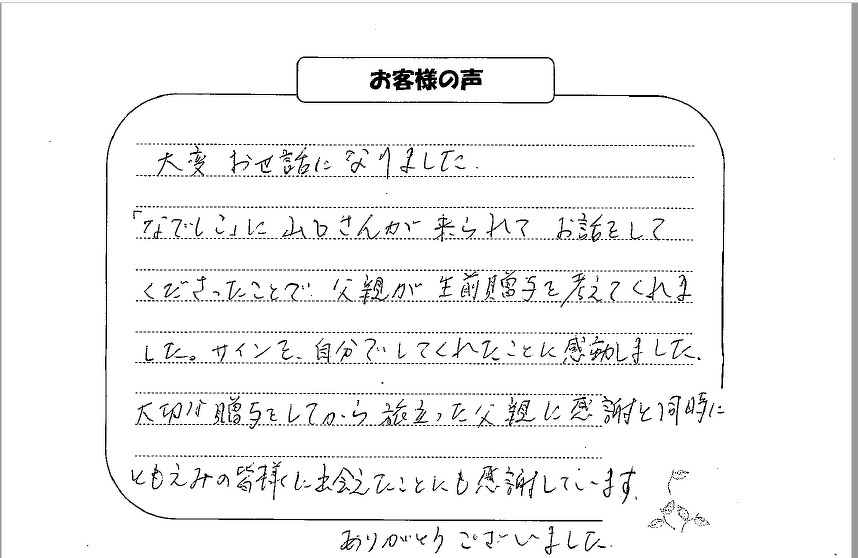 お客様の声
大変 お世話になりました.
「なでしこ」に 山口さんが 来られて お話をして
くださったことで 父親が 生前贈与を 考えてくれま
した。サインを、自分でしてくれたことに感動しました.
大切な贈与をしてから 旅立った父親に感謝と同時に
ともえみの皆様に出会えたことにも感謝しています.
ありがとう ございました.